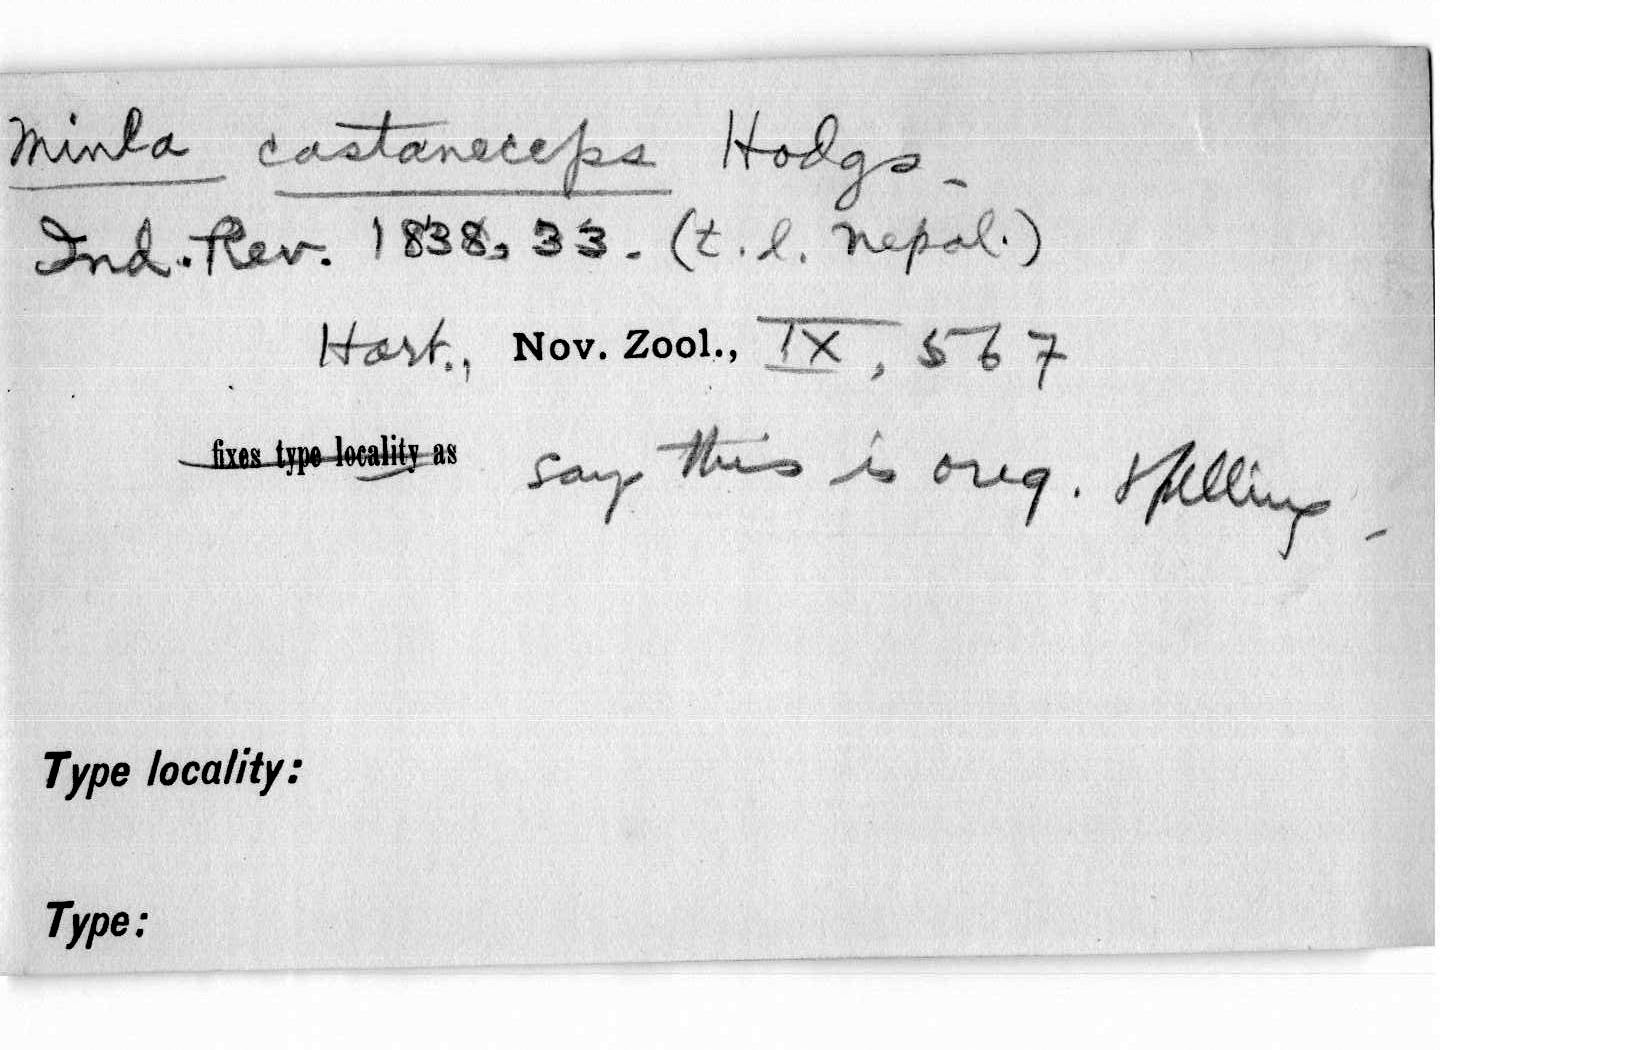 Minla castaneceps Hodgs.
Ind. Rev. 1838, 33. (t. l. Nepal.)
Hart., Nov. Zool., IX, 567
fixes type locality as say this is orig. spelling.
Type locality:
Type: